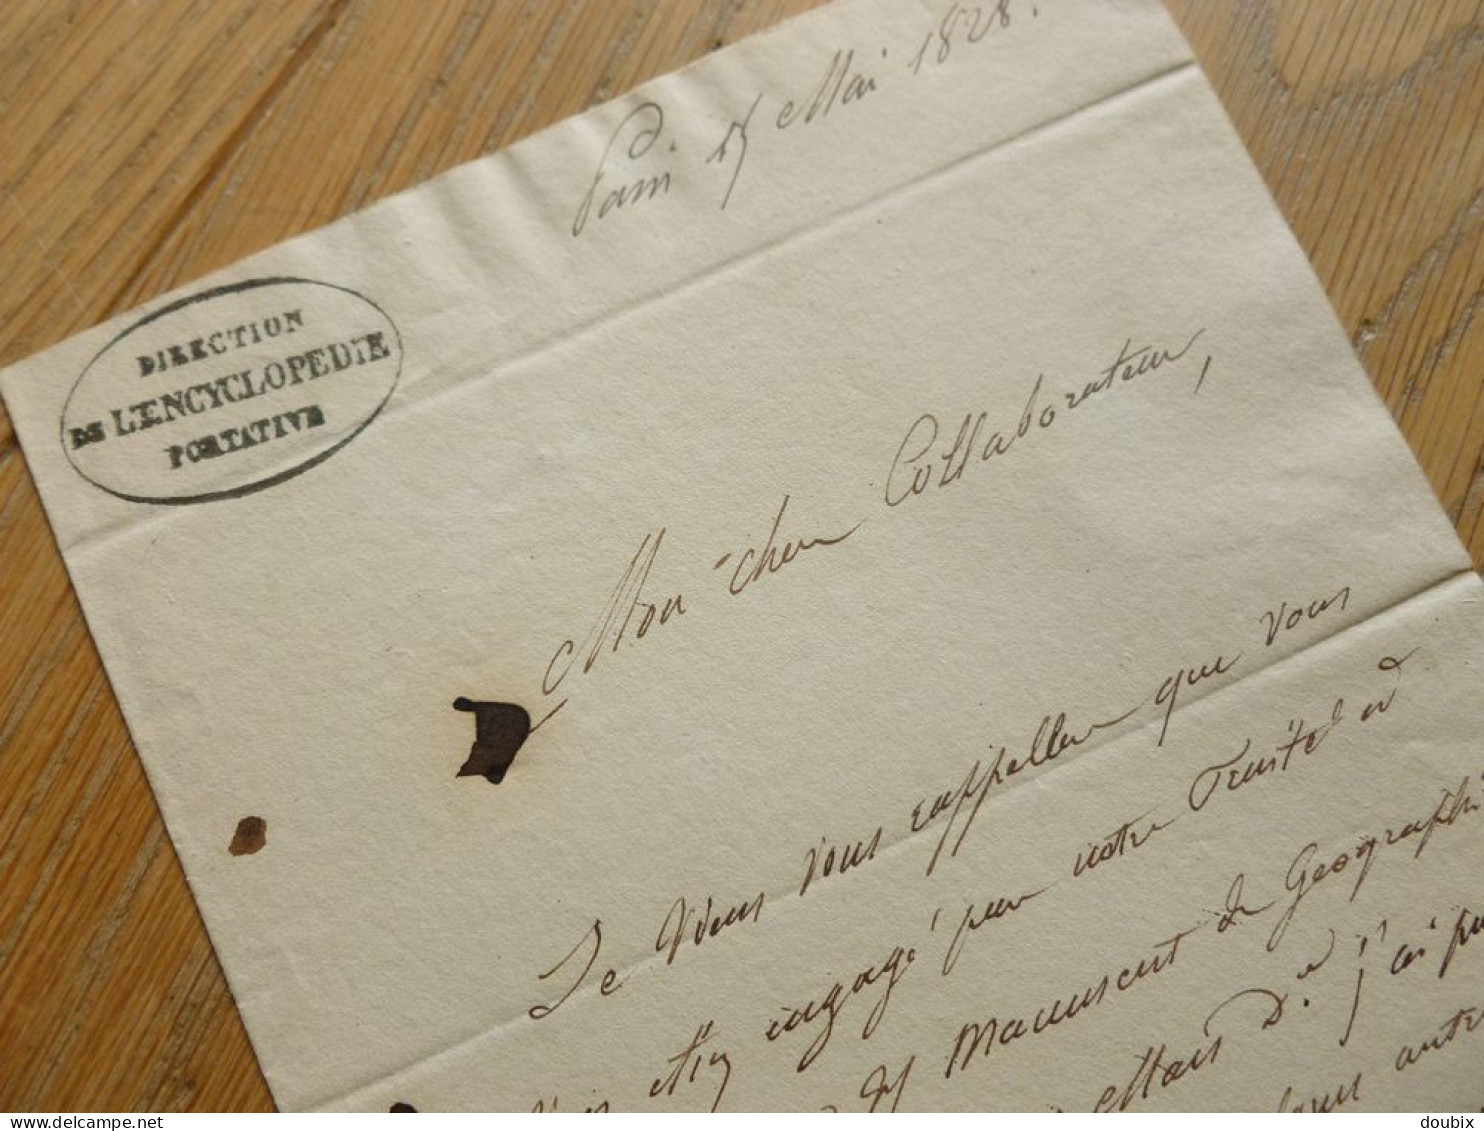 Paris 15 Mai 1828.
DIRECTION
DE L'ENCYCLOPEDIE
PORTATIVE
Mon cher Collaborateur,
Je veux vous rappeller que vous
engagé par notre Traité
Manuscrit de Géographi
Mars Dr. j'ai
autre
delcampe.net
doubix